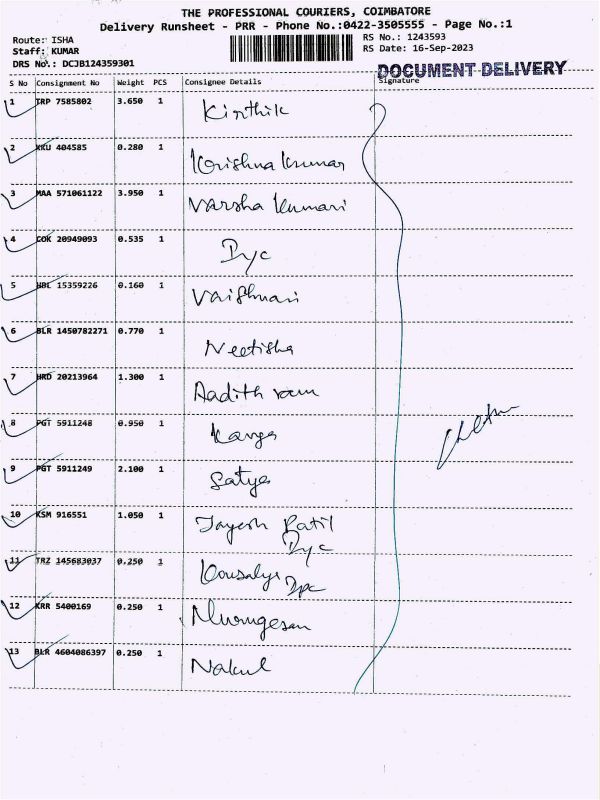 THE PROFESSIONAL COURIERS, COIMBATORE
Delivery Runsheet - PRR - Phone No.:0422-3505555 - Page No.:1
Route: ISHA
RS No.: 1243593
Staff: KUMAR
RS Date: 16-Sep-2023
DRS No.: DCJB124359301
DOCUMENT DELIVERY
S No Consignment No Weight PCS Consignee Details Signature
1 TRP 7585802 3.650 1 Kirthik
2 KKU 404585 0.280 1 Krishna Kumar
3 MAA 571061122 3.950 1 Varsha Kumari
4 COK 20949093 0.535 1 Iyc
5 HBL 15359226 0.160 1 Vaishnavi
6 BLR 1450782271 0.770 1 Neetisha
7 HRD 20213964 1.300 1 Aadith ram
8 PGT 5911248 0.950 1
9 PGT 5911249 2.100 1 Satya
10 KSM 916551 1.050 1 Jayesh Patil
Iyc
11 TRZ 145683037 0.250 1 Kousalya
12 KRR 5400169 0.250 1 Murugesan
13 BLR 4604086397 0.250 1 Nakul